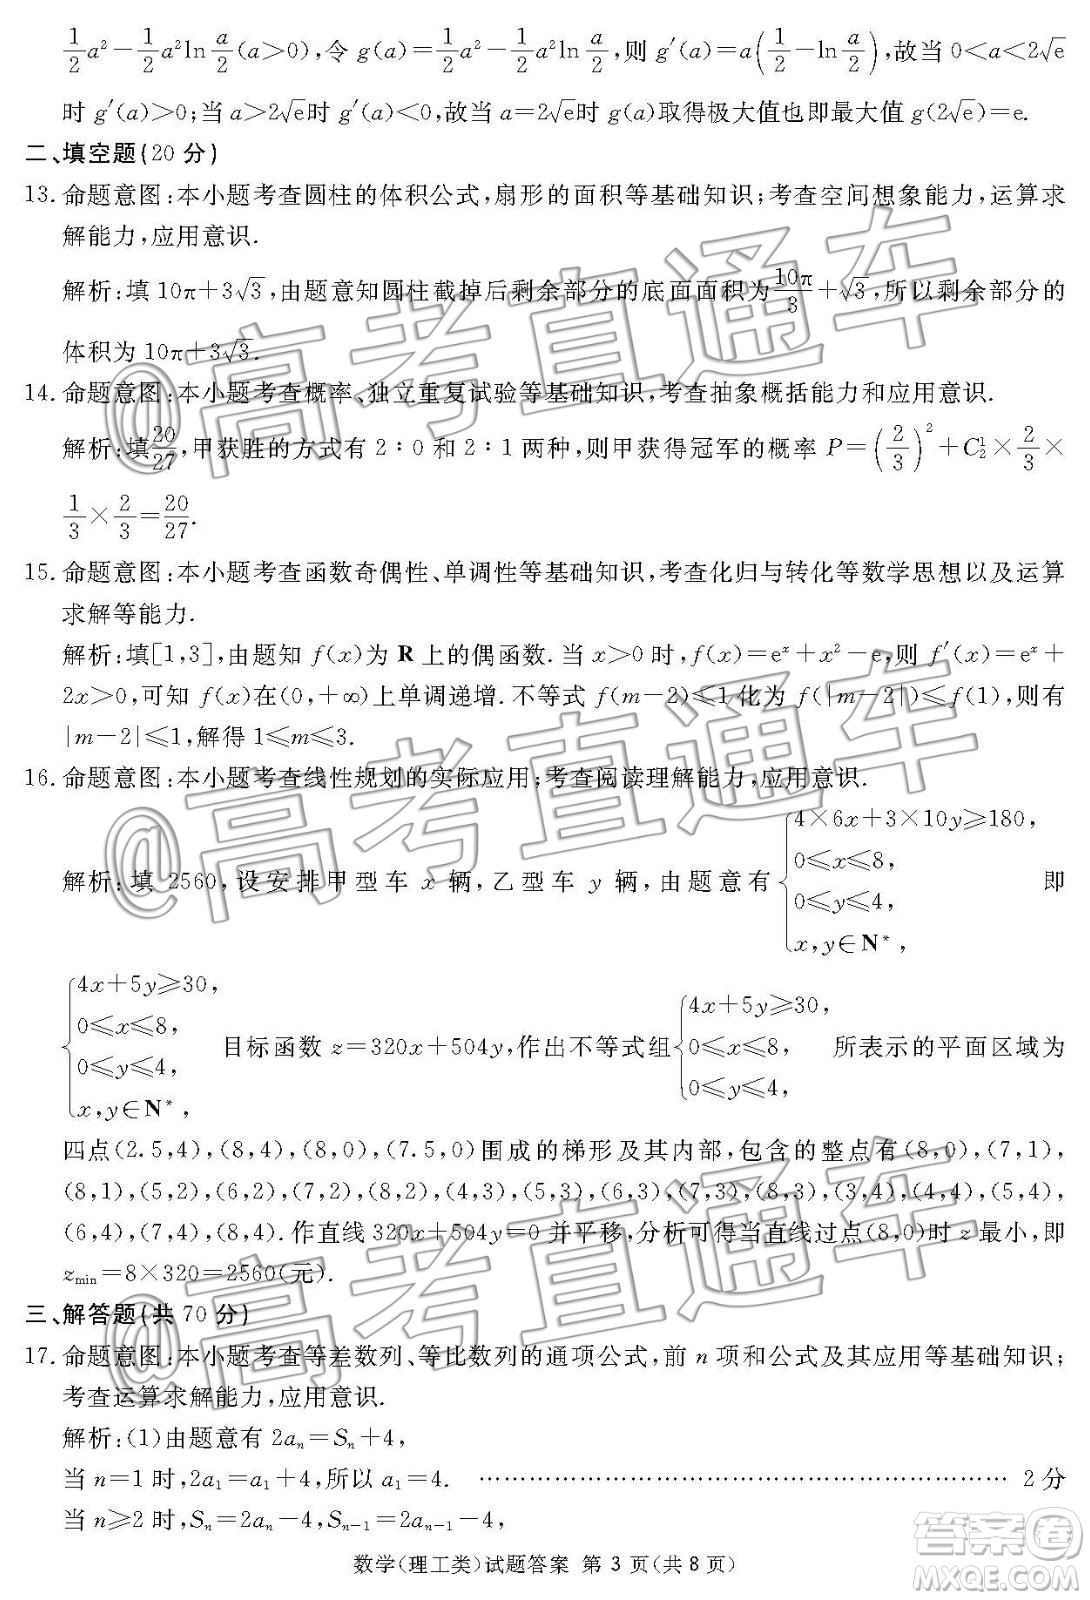 1/2a²－1/2a²ln a/2(a＞0),令 g(a)＝1/2a²－1/2a²ln a/2,则 g′(a)＝a(1/2－ln a/2),故当 0＜a＜2√e
时 g′(a)＞0;当 a＞2√e时 g′(a)＜0,故当 a＝2√e时 g(a)取得极大值也即最大值 g(2√e)＝e.
二、填空题(20 分)
13. 命题意图:本小题考查圆柱的体积公式,扇形的面积等基础知识;考查空间想象能力,运算求
解能力,应用意识.
解析:填 10π＋3√3,由题意知圆柱截掉后剩余部分的底面面积为10π/3＋√3,所以剩余部分的
体积为 10π＋3√3.
14. 命题意图:本小题考查概率、独立重复试验等基础知识,考查抽象概括能力和应用意识.
解析:填20/27,甲获胜的方式有 2∶0 和 2∶1 两种,则甲获得冠军的概率 P＝(2/3)²＋C₂¹×2/3×
1/3×2/3＝20/27.
15. 命题意图:本小题考查函数奇偶性、单调性等基础知识,考查化归与转化等数学思想以及运算
求解等能力.
解析:填[1,3],由题知 f(x)为 R 上的偶函数.当 x＞0 时,f(x)＝eˣ＋x²－e,则 f′(x)＝eˣ＋
2x＞0,可知 f(x)在(0,＋∞)上单调递增.不等式 f(m－2)≤1 化为 f(|m－2|)≤f(1),则有
|m－2|≤1,解得 1≤m≤3.
16. 命题意图:本小题考查线性规划的实际应用;考查阅读理解能力,应用意识.
解析:填 2560,设安排甲型车 x 辆,乙型车 y 辆,由题意有{4×6x＋3×10y≥180, 0≤x≤8, 0≤y≤4, x,y∈N*, 即
{4x＋5y≥30, 0≤x≤8, 0≤y≤4, x,y∈N*, 目标函数 z＝320x＋504y,作出不等式组{4x＋5y≥30, 0≤x≤8, 0≤y≤4, 所表示的平面区域为
四点(2.5,4),(8,4),(8,0),(7.5,0)围成的梯形及其内部,包含的整点有(8,0),(7,1),
(8,1),(5,2),(6,2),(7,2),(8,2),(4,3),(5,3),(6,3),(7,3),(8,3),(3,4),(4,4),(5,4),
(6,4),(7,4),(8,4).作直线 320x＋504y＝0 并平移,分析可得当直线过点(8,0)时 z 最小,即
zmin＝8×320＝2560(元).
三、解答题(共 70 分)
17. 命题意图:本小题考查等差数列、等比数列的通项公式,前 n 项和公式及其应用等基础知识;
考查运算求解能力,应用意识.
解析:(1)由题意有 2aₙ＝Sₙ＋4,
当 n＝1 时,2a₁＝a₁＋4,所以 a₁＝4. ………………………………………………………… 2 分
当 n≥2 时,Sₙ＝2aₙ－4,Sₙ₋₁＝2aₙ₋₁－4,
数学(理工类)试题答案 第 3 页(共 8 页)
@高考直通车
@高考直通车
@高考直通车
答案卷
MXQE.COM